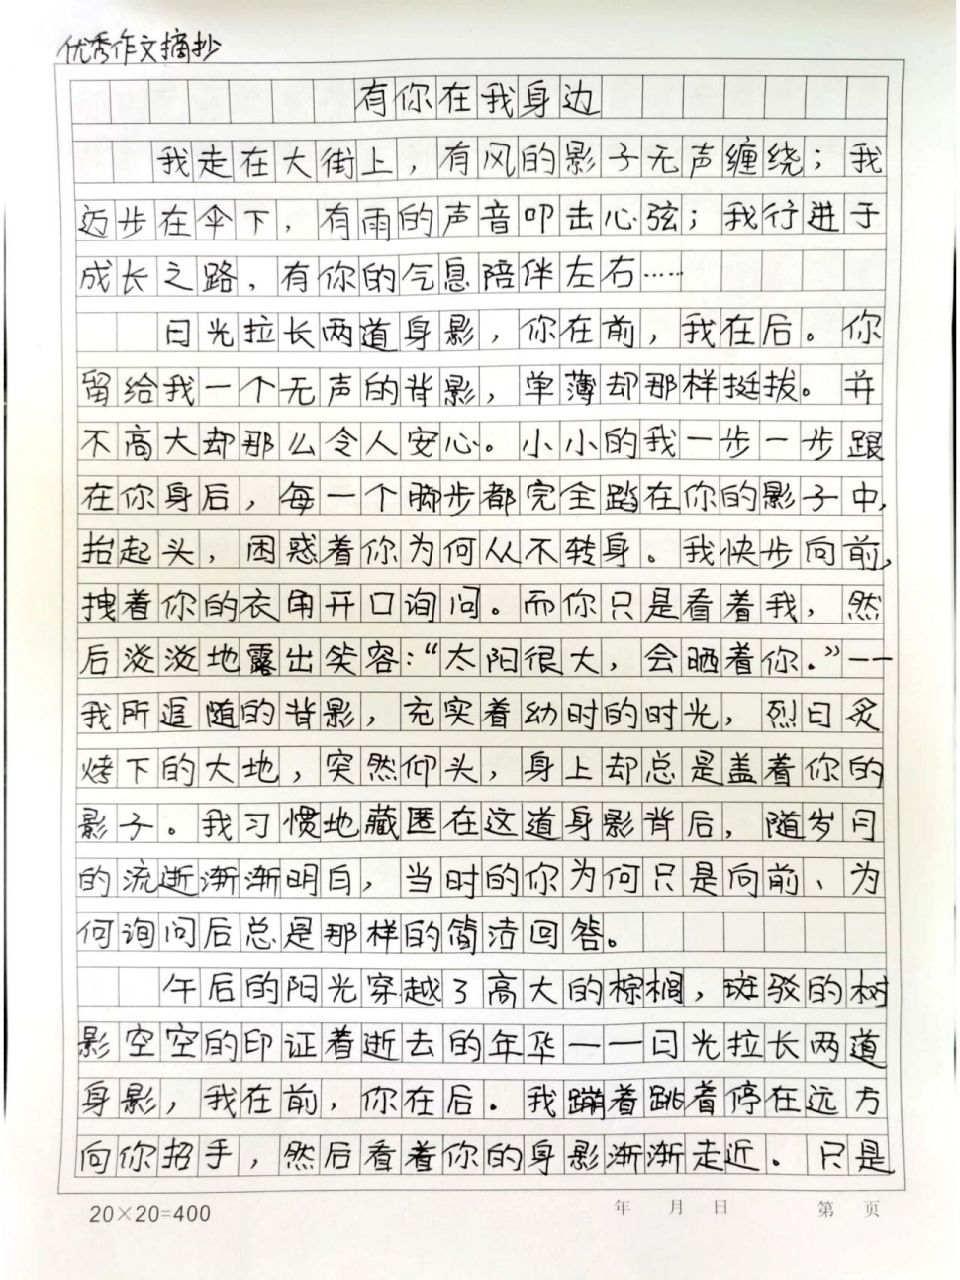 优秀作文摘抄
有你在我身边
我走在大街上，有风的影子无声缠绕；我
迈步在伞下，有雨的声音叩击心弦；我行进于
成长之路，有你的气息陪伴左右……
日光拉长两道身影，你在前，我在后。你
留给我一个无声的背影，单薄却那样挺拔。并
不高大却那么令人安心。小小的我一步一步跟
在你身后，每一个脚步都完全踏在你的影子中，
抬起头，困惑着你为何从不转身。我快步向前，
拽着你的衣角开口询问。而你只是看着我，然
后淡淡地露出笑容：“太阳很大，会晒着你。”——
我所追随的背影，充实着幼时的时光，烈日炙
烤下的大地，突然仰头，身上却总是盖着你的
影子。我习惯地藏匿在这道身影背后，随岁月
的流逝渐渐明白，当时的你为何只是向前、为
何询问后总是那样的简洁回答。
午后的阳光穿越了高大的棕榈，斑驳的树
影空空的印证着逝去的年华——日光拉长两道
身影，我在前，你在后。我蹦着跳着停在远方
向你招手，然后看着你的身影渐渐走近。只是
20×20=400
年 月 日 第 页